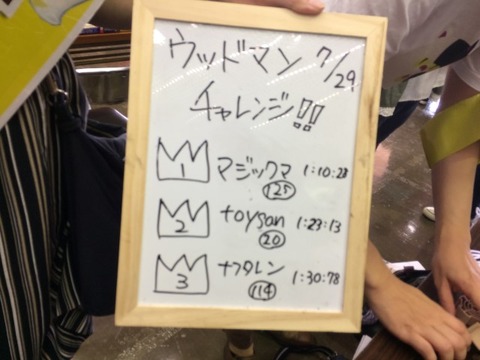 ウッドマン 7/29
チャレンジ!!
1 マジックマ 1:10:23
125
2 toyson 1:23:13
20
3 ナフタレン 1:30:78
114